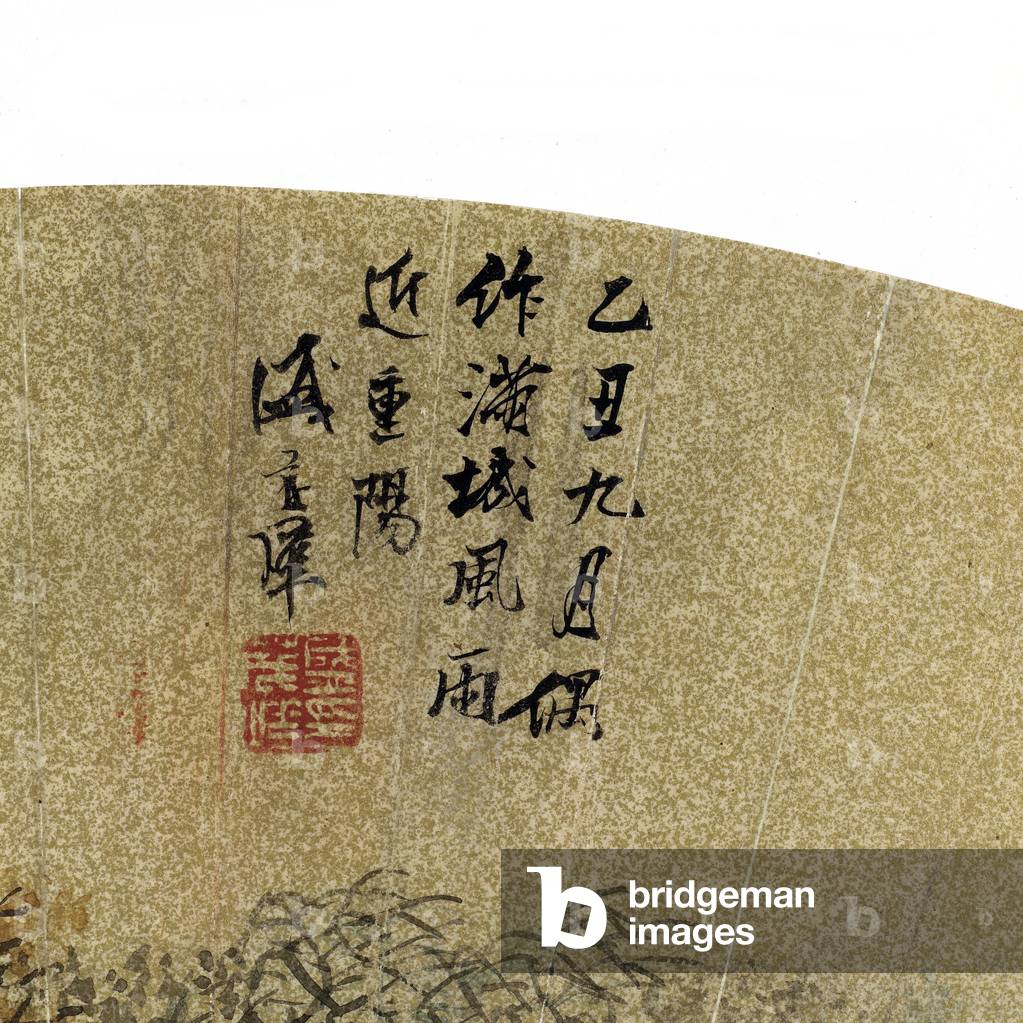 乙丑九月偶
作滿城風雨
近重陽
盛茂燁
bridgeman
images